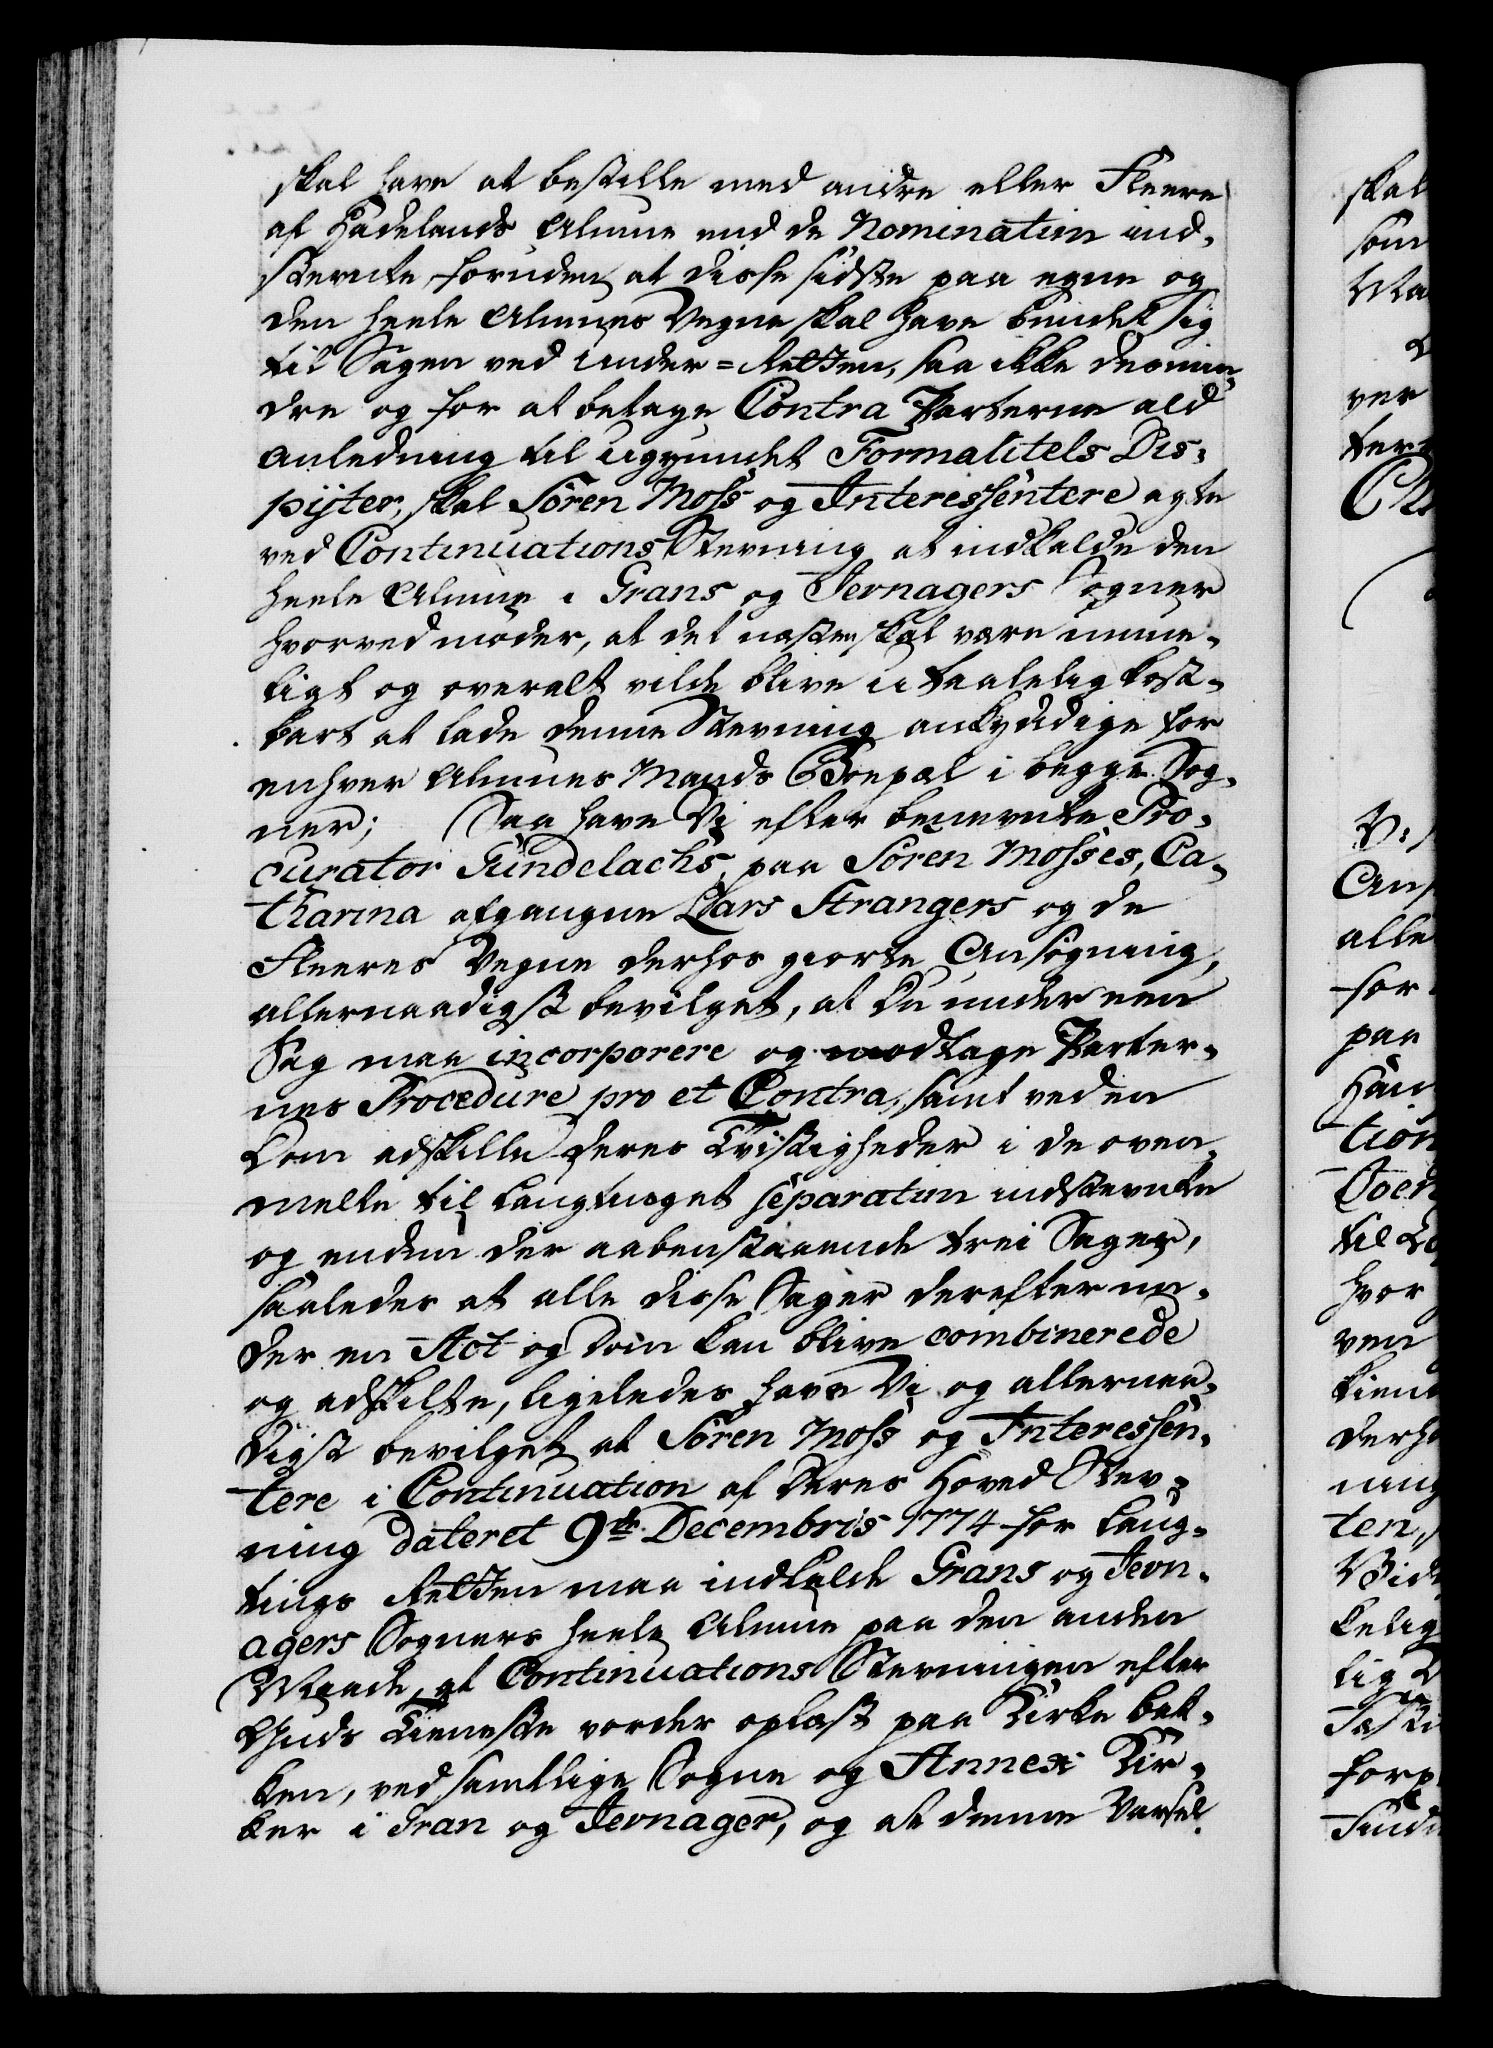 skal have at bestille med andre eller Fleere
af Hadelands Almue end de Nomination ind-
stevnte, foruden at disse sidste paa egne og
den heele Almues Vegne skal have bundet sig
til Sagen ved Under-Retten, saa ikke desmin-
dre og for at betage Contra Parterne ald
Anledning til ugrundet Formalitets Dis-
pyter, skal Sören Moss og Interessentere agte
ved Continuations Stevning at indkalde den
heele Almue i Grans og Jevnagers Sogner
hvorved möder, at det næsten skal være umue-
ligt og overalt vilde blive utaalelig kost-
bart at lade denne Stevning ankyndige for
enhver Almues Mands Bopæl i begge Sog-
ner; Saa have Vi efter benevnte Pro-
curator Gündelachs, paa Sören Mosses, Ca-
tharina afgangne Lars Strangers og de
Fleeres Vegne derhos giorte Ansögning,
allernaadigst bevilget, at Du under een
Sag maa incorporere og modtage Parter-
nes Procedure pro et Contra, samt ved en
Dom adskille deres Tvistigheder i de oven-
melte til Laugtinget separatim indstevnte
og endnu der aabenstaaende trei Sager,
saaledes at alle disse Sager derefter un-
der en Act og Dom kan blive combinerede
og adskilte, ligeledes have Vi og allernaa-
digst bevilget at Sören Moss og Interessen-
tere i Continuation af deres Hoved Stev-
ning dateret 9de Decembris 1774 for Laug-
tings Retten maa indkalde Grans og Jevn-
agers Sogners heele Almue paa den anden
Maade, at Continuations Stevningen efter
Guds Tieneste vorder oplæst paa Kirke bak-
ken, ved samtlige Sogne og Annex Kir-
ker i Gran og Jevnager, og at denne Varsel
skal
som
Ma
ver
alle
for
paa
tion
hvor
ven
derh
ning
ten,